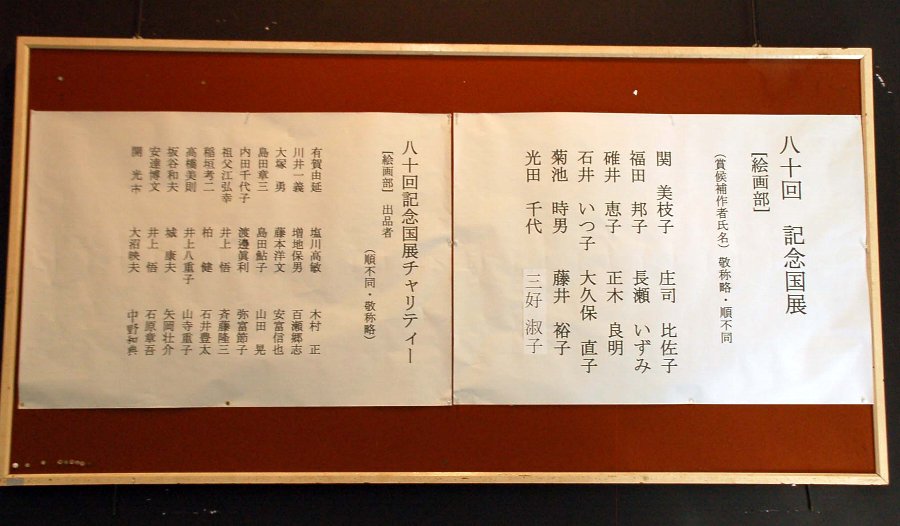 八十回 記念国展
[絵画部]
(賞候補作者氏名) 敬称略・順不同
関 美枝子 庄司 比佐子
福田 邦子 長瀬 いずみ
碓井 恵子 正木 良明
石井 いつ子 大久保 直子
菊池 時男 藤井 裕子
光田 千代 三好 淑子
八十回記念国展チャリティー
[絵画部] 出品者
(順不同・敬称略)
有賀由延 塩川高敏 木村 正
川井一義 増地保男 百瀬郷志
大塚 勇 藤本洋文 安富信也
島田章三 島田鮎子 山田 晃
内田千代子 渡邊眞利 弥富節子
祖父江弘幸 井上 悟 斉藤隆三
稲垣考二 柏 健 石井豊太
高橋美則 井上八重子 山寺重子
坂谷和夫 城 康夫 矢岡壮介
安達博文 井上 悟 石原章吾
開 光市 大沼映夫 中野和典